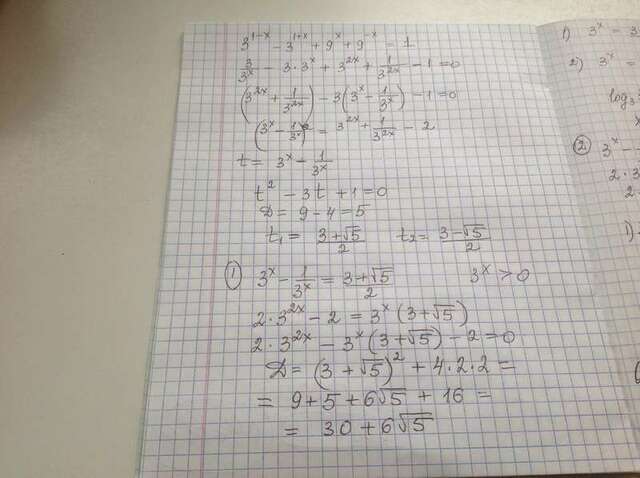 3^{1-x} - 3^{1+x} + 9^x + 9^{-x} = 1
\frac{3}{3^x} - 3·3^x + 3^{2x} + \frac{1}{3^{2x}} - 1 = 0
(3^{2x} + \frac{1}{3^{2x}}) - 3(3^x - \frac{1}{3^x}) - 1 = 0
(3^x - \frac{1}{3^x})^2 = 3^{2x} + \frac{1}{3^{2x}} - 2
t = 3^x - \frac{1}{3^x}
t^2 - 3t + 1 = 0
D = 9 - 4 = 5
t_1 = \frac{3+√5}{2} t_2 = \frac{3-√5}{2}
① 3^x - \frac{1}{3^x} = \frac{3+√5}{2} 3^x > 0
2·3^{2x} - 2 = 3^x (3+√5)
2·3^{2x} - 3^x (3+√5) - 2 = 0
D = (3+√5)^2 + 4·2·2 =
= 9+5+6√5 + 16 =
= 30+6√5
1) 3^x = 3
2) 3^x =
log_3
x
② 3^x -
2·3
2.
1)